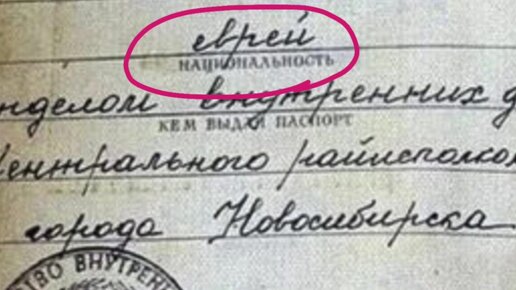 еврей
НАЦИОНАЛЬНОСТЬ
нделом внутренних д
КЕМ ВЫДАН ПАСПОРТ
Центрального райисполком
города Новосибирска
СТВО ВНУТРЕН